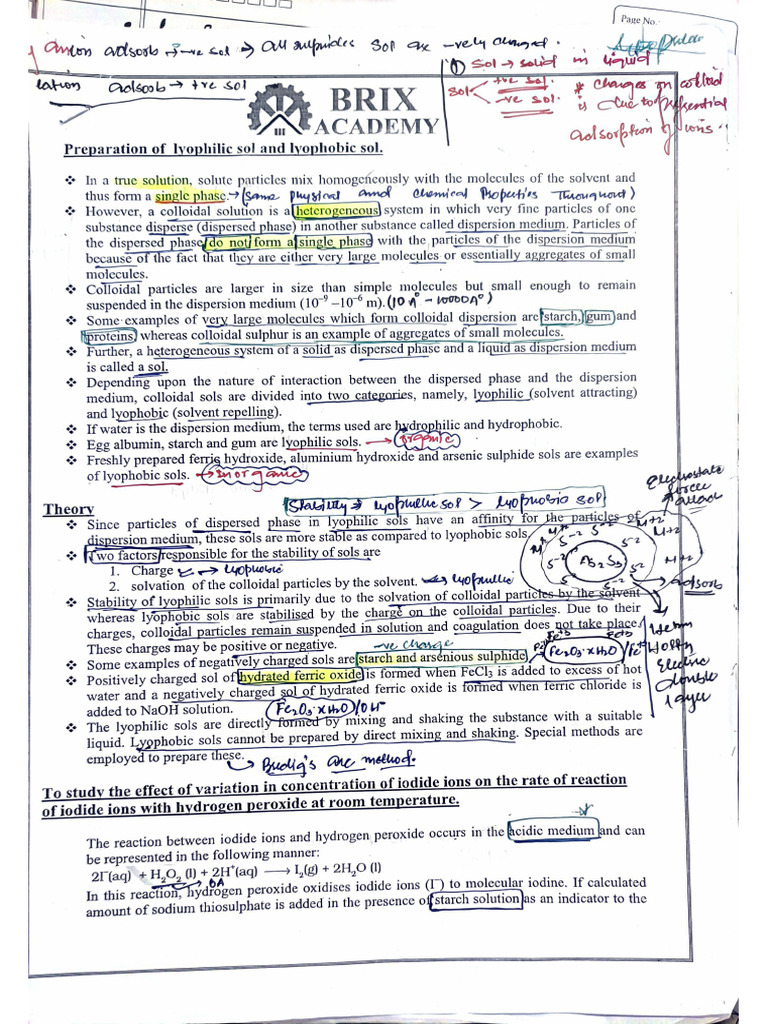 Page No.
anion adsorb → -ve sol ⇒ all sulphides sol are -vely charged.
① Sol → solid in liquid
cation adsorb → +ve sol
sol < +ve sol.
-ve sol.
* charges on colloid
is due to prefrential
adsorption of ions.
BRIX
ACADEMY
Preparation of lyophilic sol and lyophobic sol.
❖ In a true solution, solute particles mix homogeneously with the molecules of the solvent and
thus form a single phase. → (Same physical and chemical Properties Throughout)
❖ However, a colloidal solution is a heterogeneous system in which very fine particles of one
substance disperse (dispersed phase) in another substance called dispersion medium. Particles of
the dispersed phase do not form a single phase with the particles of the dispersion medium
because of the fact that they are either very large molecules or essentially aggregates of small
molecules.
❖ Colloidal particles are larger in size than simple molecules but small enough to remain
suspended in the dispersion medium (10⁻⁹ –10⁻⁶ m). (10 A° - 10000A°)
❖ Some examples of very large molecules which form colloidal dispersion are starch, gum and
proteins, whereas colloidal sulphur is an example of aggregates of small molecules.
❖ Further, a heterogeneous system of a solid as dispersed phase and a liquid as dispersion medium
is called a sol.
❖ Depending upon the nature of interaction between the dispersed phase and the dispersion
medium, colloidal sols are divided into two categories, namely, lyophilic (solvent attracting)
and lyophobic (solvent repelling).
❖ If water is the dispersion medium, the terms used are hydrophilic and hydrophobic.
❖ Egg albumin, starch and gum are lyophilic sols. → organic
❖ Freshly prepared ferric hydroxide, aluminium hydroxide and arsenic sulphide sols are examples
of lyophobic sols. → Inorganic
Theory
Stability ⇒ lyophilic sol > lyophobic sol
❖ Since particles of dispersed phase in lyophilic sols have an affinity for the particles of
dispersion medium, these sols are more stable as compared to lyophobic sols.
❖ Two factors responsible for the stability of sols are
1. Charge → lyophobic
2. solvation of the colloidal particles by the solvent. → lyophilic
Electrostatic
force
As₂S₃
S⁻² S⁻² S⁻² S⁻² S⁻²
M+2 M+2 M+2
adsorb
Helm
Holtz
Electric
double
layer
❖ Stability of lyophilic sols is primarily due to the solvation of colloidal particles by the solvent
whereas lyophobic sols are stabilised by the charge on the colloidal particles. Due to their
charges, colloidal particles remain suspended in solution and coagulation does not take place.
These charges may be positive or negative. -ve charge
❖ Some examples of negatively charged sols are starch and arsenious sulphide.
Fe₂O₃·xH₂O/Fe³⁺
❖ Positively charged sol of hydrated ferric oxide is formed when FeCl₃ is added to excess of hot
water and a negatively charged sol of hydrated ferric oxide is formed when ferric chloride is
added to NaOH solution. Fe₂O₃·xH₂O/OH⁻
❖ The lyophilic sols are directly formed by mixing and shaking the substance with a suitable
liquid. Lyophobic sols cannot be prepared by direct mixing and shaking. Special methods are
employed to prepare these. → Bredig's arc method.
To study the effect of variation in concentration of iodide ions on the rate of reaction
of iodide ions with hydrogen peroxide at room temperature.
The reaction between iodide ions and hydrogen peroxide occurs in the acidic medium and can
be represented in the following manner:
2I⁻(aq) + H₂O₂ (l) + 2H⁺(aq) ⟶ I₂(g) + 2H₂O (l)
OA
In this reaction, hydrogen peroxide oxidises iodide ions (I⁻) to molecular iodine. If calculated
amount of sodium thiosulphate is added in the presence of starch solution as an indicator to the